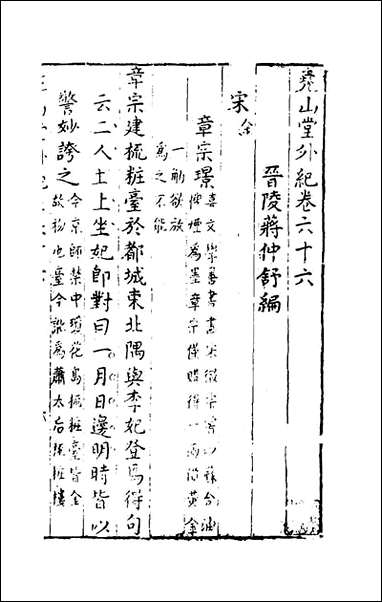 堯山堂外紀卷六十六
晉陵蔣仲舒編
宋 金
章宗璟
喜文學善書畫宋徽宗嘗以蘇合油
烟為墨章宗購得一兩酬黃金
一觔欲放
為之不能
章宗建梳粧臺於都城東北隅與李妃登焉得句
云二人土上坐妃卽對曰一月日邊明時皆以
警妙誇之
今京師禁中瓊花島梳粧臺皆金
故物也臺今訛為蕭太后梳粧樓